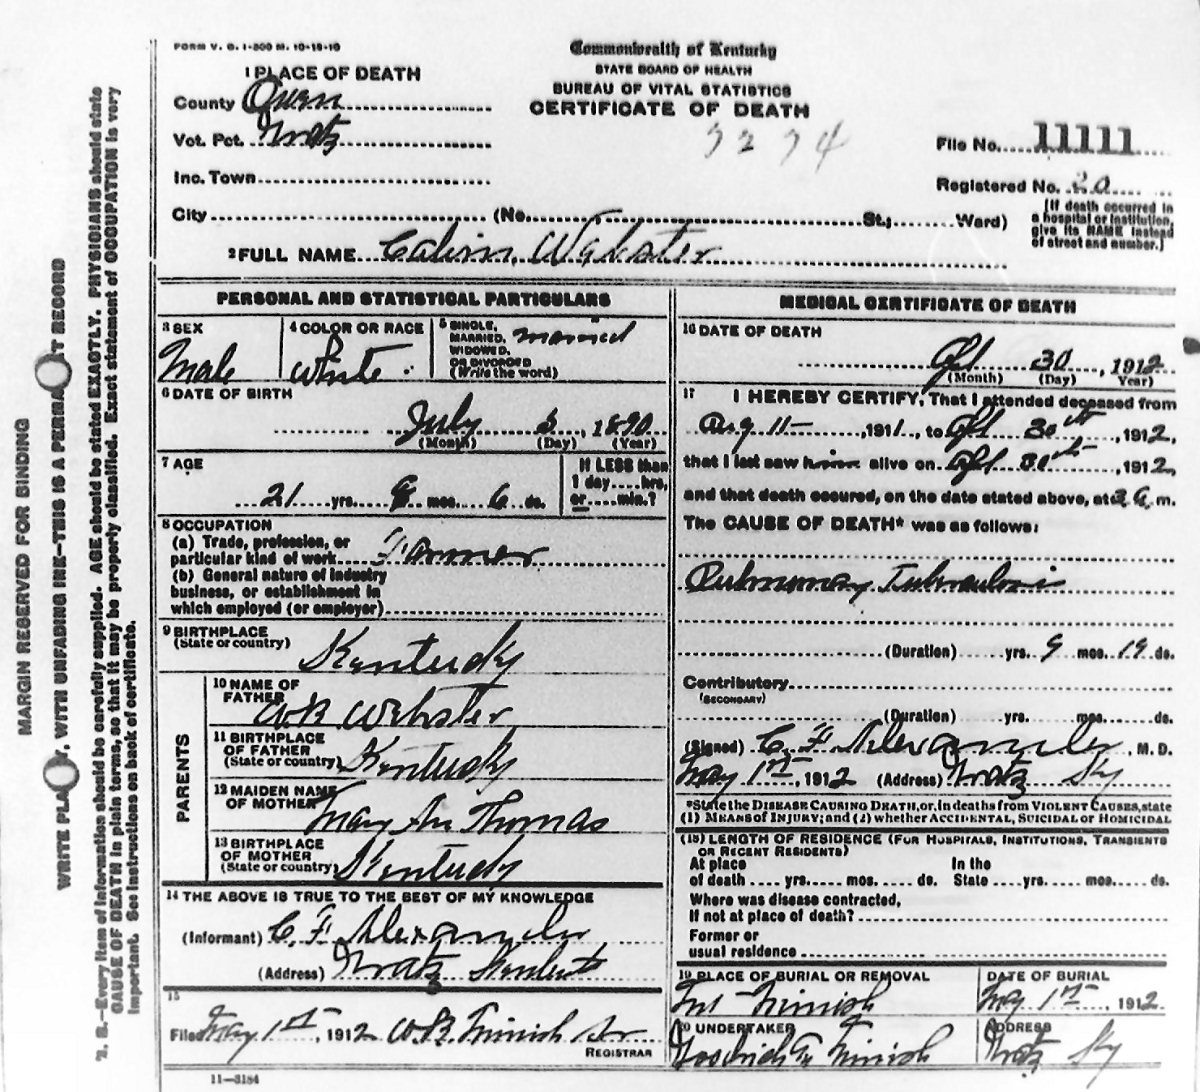 FORM V. S. 1-300 M. 10-18-10
Commonwealth of Kentucky
STATE BOARD OF HEALTH
BUREAU OF VITAL STATISTICS
CERTIFICATE OF DEATH
1 PLACE OF DEATH
County Owen
Vot. Pct. Gratz
Inc. Town
City (No. St.; Ward)
File No. 11111
Registered No. 20
(If death occurred in
a hospital or institution,
give its NAME instead
of street and number.)
2 FULL NAME Calvin Webster
PERSONAL AND STATISTICAL PARTICULARS
3 SEX
Male
4 COLOR OR RACE
White
5 SINGLE,
MARRIED,
WIDOWED,
OR DIVORCED
(Write the word)
married
6 DATE OF BIRTH
July , 1890
(Month) (Day) (Year)
7 AGE
21 yrs. mos. 6 ds.
If LESS than
1 day hrs.
or min.?
8 OCCUPATION
(a) Trade, profession, or
particular kind of work Farmer
(b) General nature of industry
business, or establishment in
which employed (or employer)
9 BIRTHPLACE
(State or country)
Kentucky
PARENTS
10 NAME OF
FATHER WB Webster
11 BIRTHPLACE
OF FATHER
(State or country) Kentucky
12 MAIDEN NAME
OF MOTHER Mary An Thomas
13 BIRTHPLACE
OF MOTHER
(State or country) Kentucky
14 THE ABOVE IS TRUE TO THE BEST OF MY KNOWLEDGE
(Informant) C. F Alexander
(Address) Gratz Kentucky
15
Filed May 1st, 1912 W.B. Minish Sr
REGISTRAR
11-3184
MEDICAL CERTIFICATE OF DEATH
16 DATE OF DEATH
Apl 30, 1912
(Month) (Day) Year)
17 I HEREBY CERTIFY, That I attended deceased from
Aug 11, 1911, to Apl 30th, 1912,
that I last saw him alive on Apl 30th, 1912,
and that death occured, on the date stated above, at m.
The CAUSE OF DEATH* was as follows:
Pulmonary Tuberculosis
(Duration) yrs. 9 mos. 19 ds.
Contributory
(SECONDARY)
(Duration) yrs. mos. ds.
(Signed) C. F Alexander, M. D.
May 1st, 1912 (Address) Gratz Ky
*State the DISEASE CAUSING DEATH, or, in deaths from VIOLENT CAUSES, state
(1) MEANS of INJURY; and (2) whether ACCIDENTAL, SUICIDAL or HOMICIDAL
(18) LENGTH OF RESIDENCE (FOR HOSPITALS, INSTITUTIONS, TRANSIENTS
OR RECENT RESIDENTS)
At place In the
of death yrs. mos. ds. State yrs. mos. ds.
Where was disease contracted,
If not at place of death?
Former or
usual residence
19 PLACE OF BURIAL OR REMOVAL
Minish
DATE OF BURIAL
May 1st, 1912
20 UNDERTAKER
Minish
ADDRESS
Gratz Ky
MARGIN RESERVED FOR BINDING
WRITE PLA Y, WITH UNFADING INK-THIS IS A PERMA T RECORD
B.-Every item of information should be carefully supplied. AGE should be stated EXACTLY. PHYSICIANS should state
CAUSE OF DEATH in plain terms, so that it may be properly classified. Exact statement of OCCUPATION is very
important. See instructions on back of certificate.